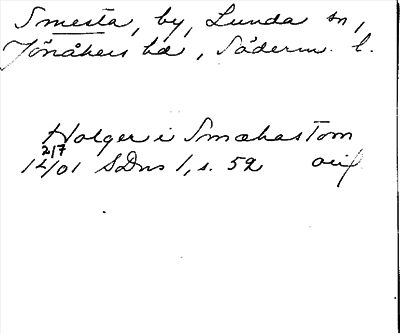 Smesta, by, Lunda sn,
Jönåkers hd, Söderm. l.
Holger i Smæhastom
2/7
12/01 SDns 1, s. 52